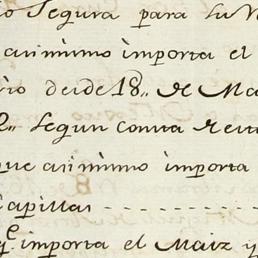 o Segura para su
asimismo importa el
rio desde 18,, de Ma
segun consta
que asimismo importa
capillas - - - - - - - - - - -
q.e importa el Maiz y